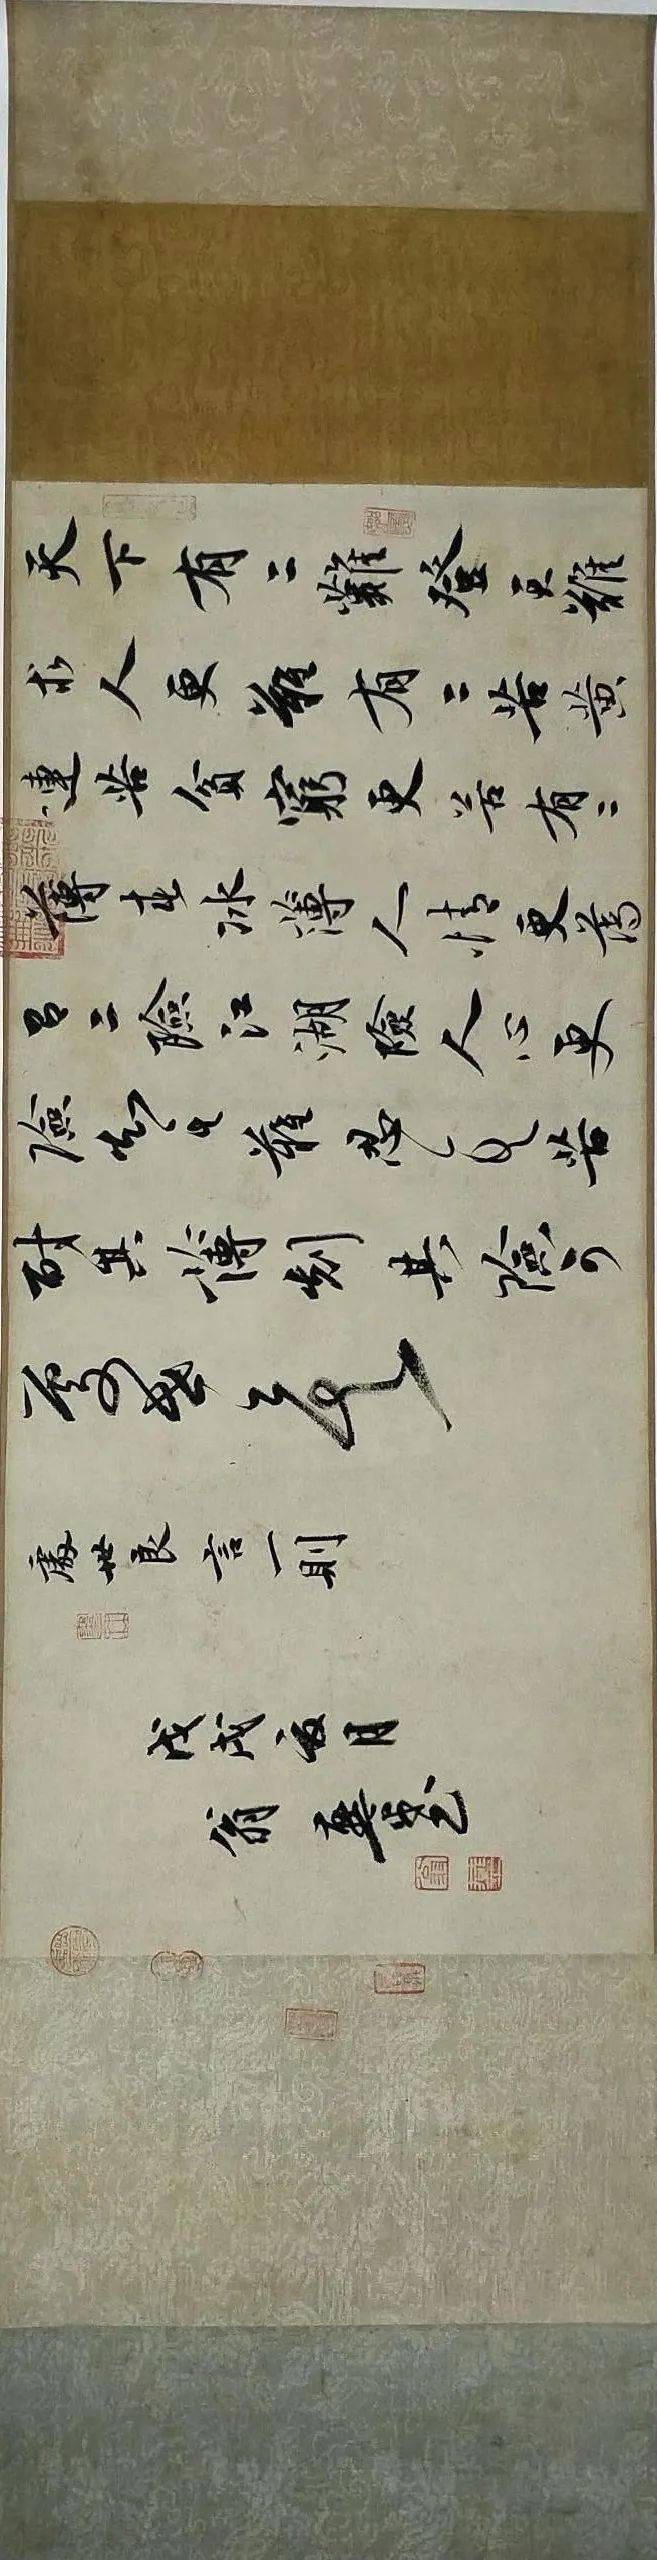 天下有二難登天難
求人更難有二苦黃
連苦貧窮更苦有二
薄春冰薄人情更薄
有二險江湖險人心更
險知其難忍其苦
耐其薄測其險可
以處世矣
處世良言一則
戊戌五月
翁